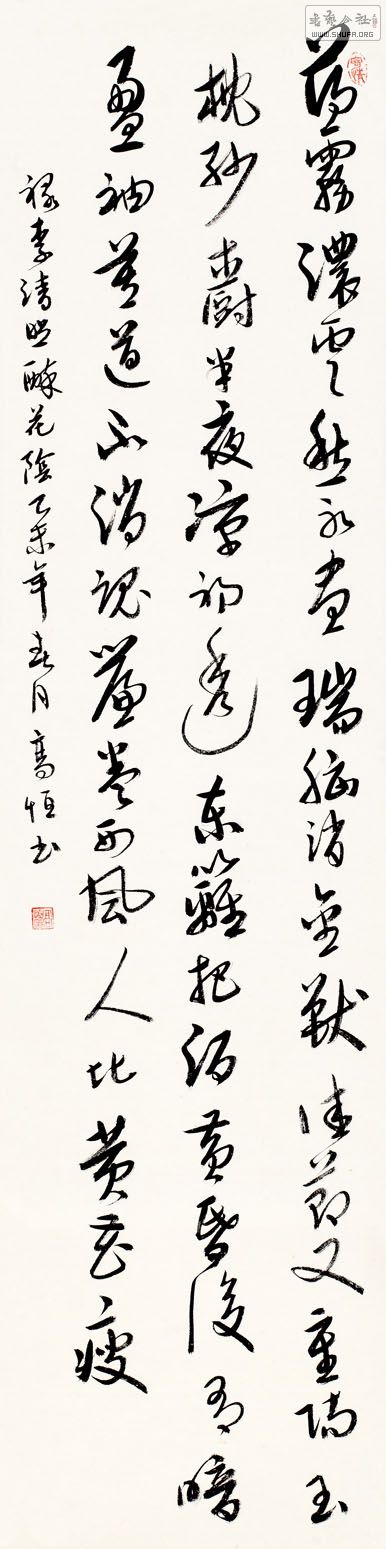 書藝公社
WWW.SHUFA.ORG
薄霧濃雲愁永晝瑞腦消金獸佳節又重陽玉
枕紗櫥半夜涼初透東籬把酒黃昏後有暗
盈袖莫道不消魂簾卷西風人比黃花瘦
錄李清照醉花陰乙未年春月高恒書